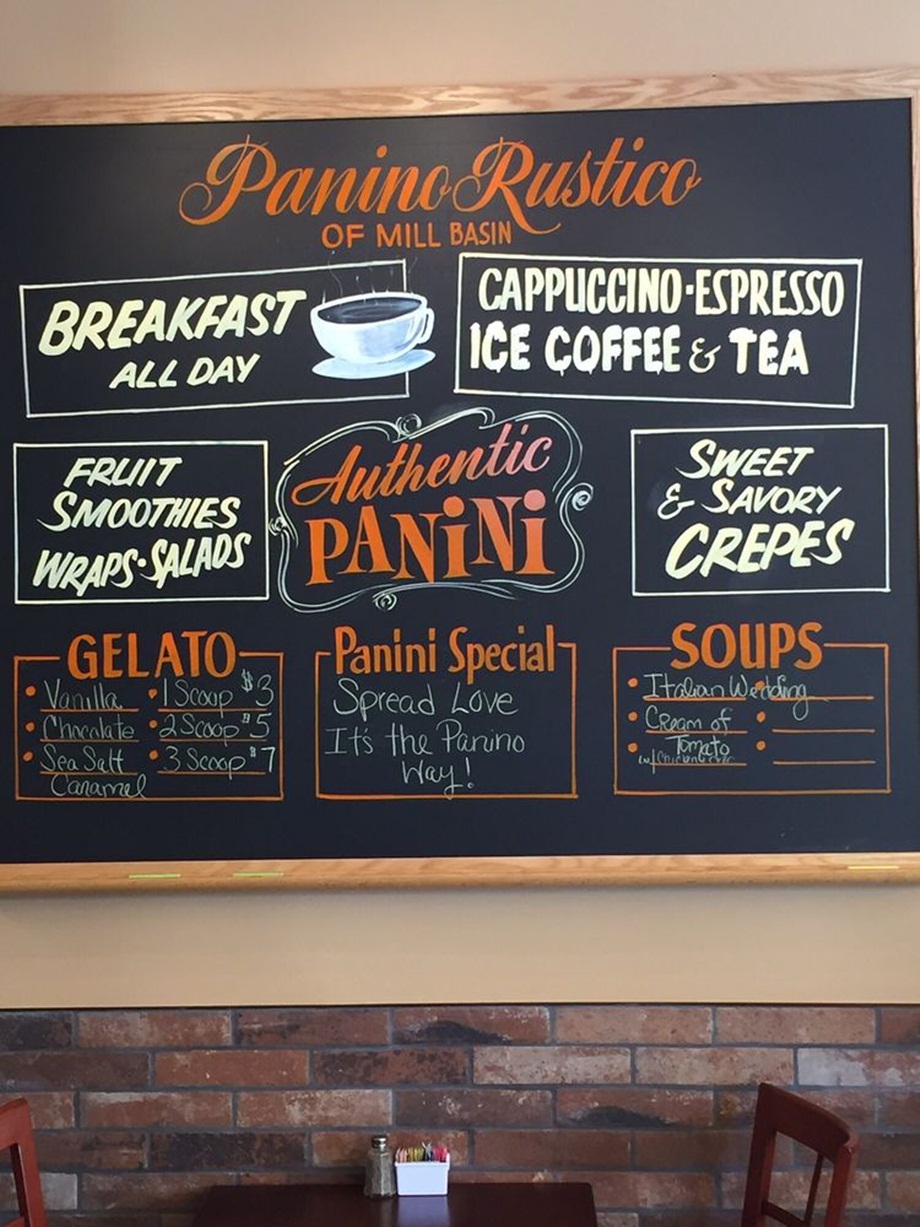 Panino Rustico
OF MILL BASIN
BREAKFAST
ALL DAY
CAPPUCCINO·ESPRESSO
ICE COFFEE & TEA
FRUIT
SMOOTHIES
WRAPS·SALADS
Authentic
PANiNi
SWEET
& SAVORY
CREPES
GELATO
• Vanilla • 1 Scoop $3
• Chocolate • 2 Scoop $5
• Sea Salt • 3 Scoop $7
Caramel
Panini Special
Spread Love
It's the Panino
Way!
SOUPS
• Italian Wedding
• Cream of
• Tomato
w/ chicken